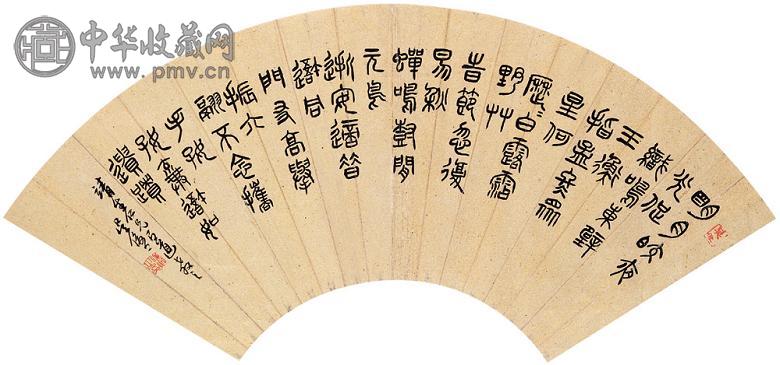 中华收藏网
www.pmv.cn
明月皎夜
光促
織鳴東壁
玉衡
指孟冬眾
星何
歷〻白露霑
野艸
時節忽復
易秋
蟬鳴尌閒
元鳥
逝安適昔
我同
門友高舉
振六
翮不念攜
手好
棄我如
遺跡